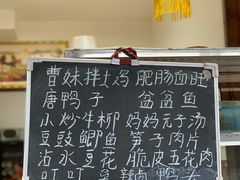 曹妹拌土鸡 肥肠血旺
唐鸭子 盆盆鱼
小炒牛柳 妈妈元子汤
豆豉鲫鱼 笋子肉片
沾水豆花 脆皮五花肉
叮叮 鱼 辣卤鸭头